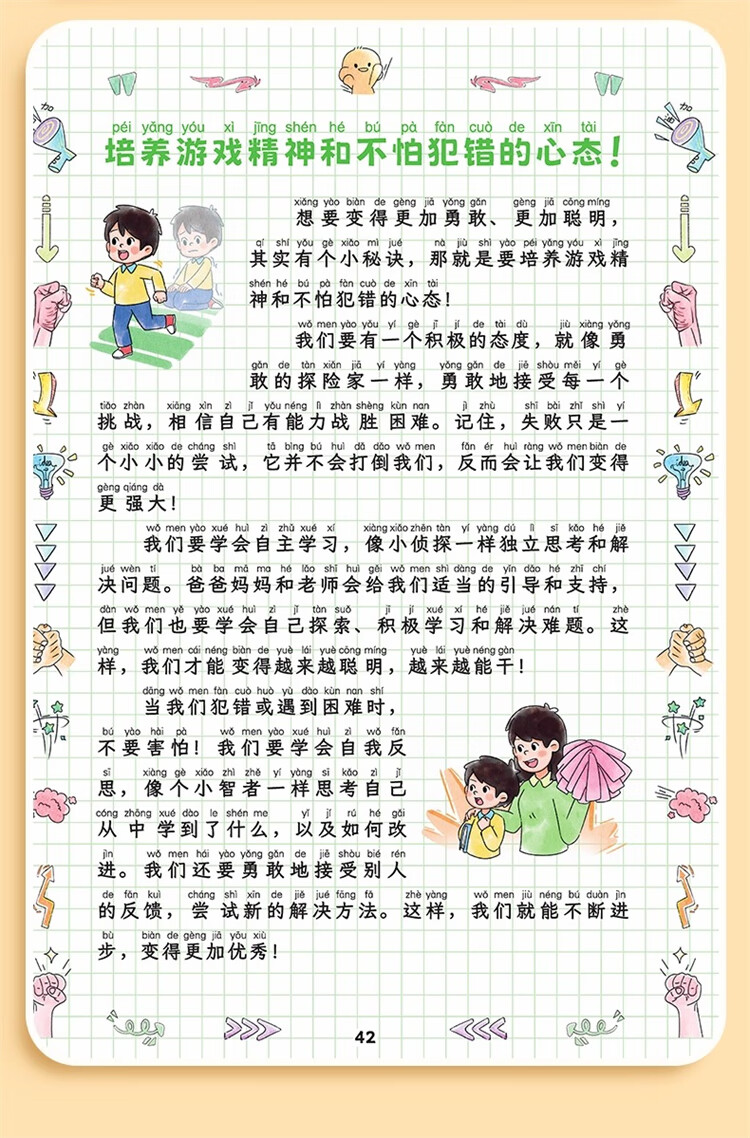 péi yǎng yóu xì jīng shén hé bú pà fàn cuò de xīn tài
培养游戏精神和不怕犯错的心态！
xiǎng yào biàn de gèng jiā yǒng gǎn gèng jiā cōng míng
想要变得更加勇敢、更加聪明，
qí shí yǒu gè xiǎo mì jué nà jiù shì yào péi yǎng yóu xì jīng
其实有个小秘诀，那就是要培养游戏精
shén hé bú pà fàn cuò de xīn tài
神和不怕犯错的心态！
wǒ men yào yǒu yí gè jī jí de tài dù jiù xiàng yǒng
我们要有一个积极的态度，就像勇
gǎn de tàn xiǎn jiā yí yàng yǒng gǎn de jiē shòu měi yí gè
敢的探险家一样，勇敢地接受每一个
tiǎo zhàn xiāng xìn zì jǐ yǒu néng lì zhàn shèng kùn nan jì zhù shī bài zhǐ shì yí
挑战，相信自己有能力战胜困难。记住，失败只是一
gè xiǎo xiǎo de cháng shì tā bìng bú huì dǎ dǎo wǒ men fǎn ér huì ràng wǒ men biàn de
个小小的尝试，它并不会打倒我们，反而会让我们变得
gèng qiáng dà
更强大！
wǒ men yào xué huì zì zhǔ xué xí xiàng xiǎo zhēn tàn yí yàng dú lì sī kǎo hé jiě
我们要学会自主学习，像小侦探一样独立思考和解
jué wèn tí bà ba mā ma hé lǎo shī huì gěi wǒ men shì dàng de yǐn dǎo hé zhī chí
决问题。爸爸妈妈和老师会给我们适当的引导和支持，
dàn wǒ men yě yào xué huì zì jǐ tàn suǒ jī jí xué xí hé jiě jué nán tí zhè
但我们也要学会自己探索、积极学习和解决难题。这
yàng wǒ men cái néng biàn de yuè lái yuè cōng míng yuè lái yuè néng gàn
样，我们才能变得越来越聪明，越来越能干！
dāng wǒ men fàn cuò huò yù dào kùn nan shí
当我们犯错或遇到困难时，
bú yào hài pà wǒ men yào xué huì zì wǒ fǎn
不要害怕！我们要学会自我反
sī xiàng gè xiǎo zhì zhě yí yàng sī kǎo zì jǐ
思，像个小智者一样思考自己
cóng zhōng xué dào le shén me yǐ jí rú hé gǎi
从中学到了什么，以及如何改
jìn wǒ men hái yào yǒng gǎn de jiē shòu bié rén
进。我们还要勇敢地接受别人
de fǎn kuì cháng shì xīn de jiě jué fāng fǎ zhè yàng wǒ men jiù néng bú duàn jìn
的反馈，尝试新的解决方法。这样，我们就能不断进
bù biàn de gèng jiā yōu xiù
步，变得更加优秀！
42